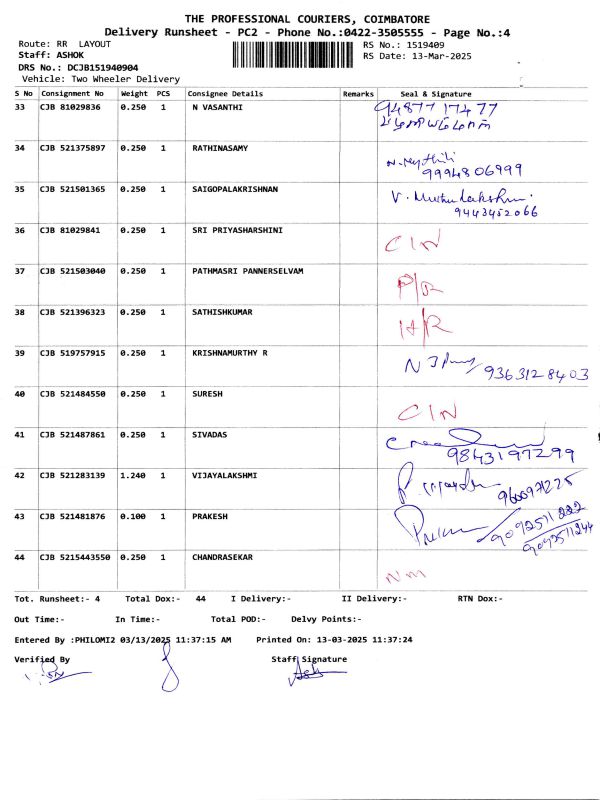 THE PROFESSIONAL COURIERS, COIMBATORE
Delivery Runsheet - PC2 - Phone No.:0422-3505555 - Page No.:4
Route: RR LAYOUT RS No.: 1519409
Staff: ASHOK RS Date: 13-Mar-2025
DRS No.: DCJB151940904
Vehicle: Two Wheeler Delivery
S No Consignment No Weight PCS Consignee Details Remarks Seal & Signature
33 CJB 81029836 0.250 1 N VASANTHI 94877 17477
34 CJB 521375897 0.250 1 RATHINASAMY N. Mythili
9994806999
35 CJB 521501365 0.250 1 SAIGOPALAKRISHNAN V. Muthulakshmi.
9443452066
36 CJB 81029841 0.250 1 SRI PRIYASHARSHINI C/N
37 CJB 521503040 0.250 1 PATHMASRI PANNERSELVAM P/R
38 CJB 521396323 0.250 1 SATHISHKUMAR H/R
39 CJB 519757915 0.250 1 KRISHNAMURTHY R 9363128403
40 CJB 521484550 0.250 1 SURESH C/N
41 CJB 521487861 0.250 1 SIVADAS
9843197299
42 CJB 521283139 1.240 1 VIJAYALAKSHMI
43 CJB 521481876 0.100 1 PRAKESH 9092511222
9092511244
44 CJB 5215443550 0.250 1 CHANDRASEKAR NM
Tot. Runsheet:- 4 Total Dox:- 44 I Delivery:- II Delivery:- RTN Dox:-
Out Time:- In Time:- Total POD:- Delvy Points:-
Entered By :PHILOMI2 03/13/2025 11:37:15 AM Printed On: 13-03-2025 11:37:24
Verified By Staff Signature